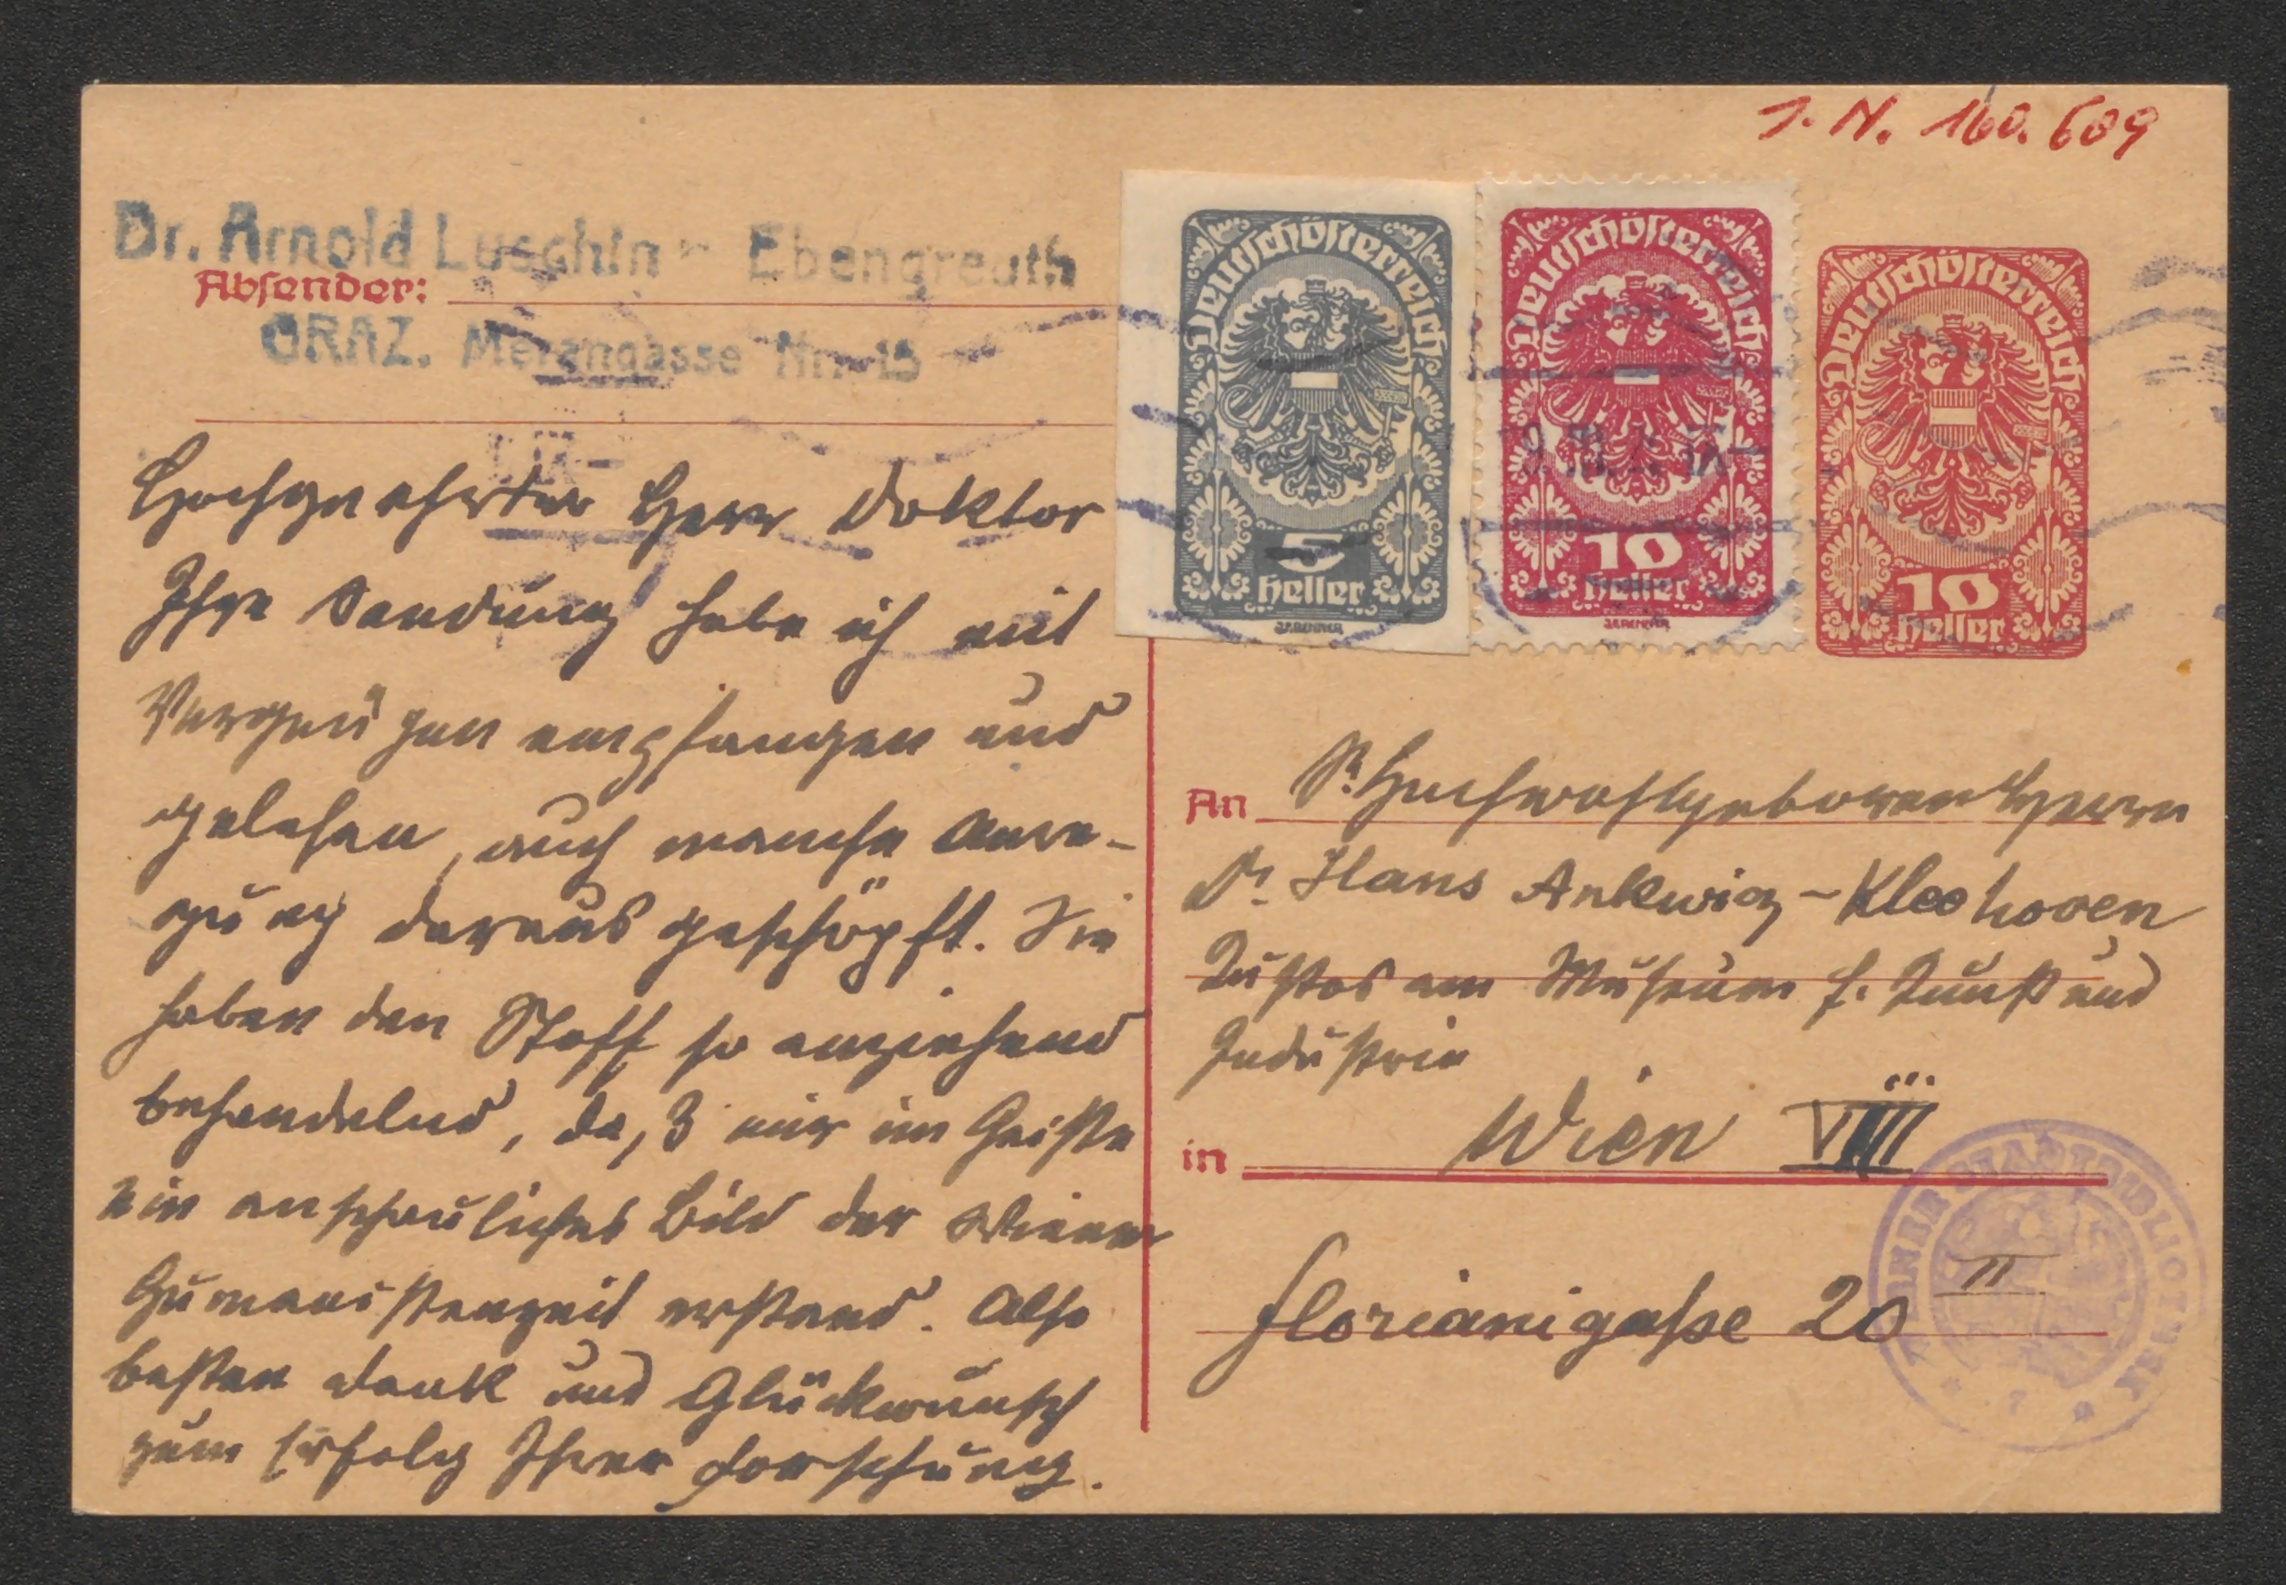 J. N. 160.609
Dr. Arnold Luschin - Ebengreuth
Absender:
GRAZ. Merangasse Nr. 15
Hochgeehrter Herr Doktor
Ihre Sendung habe ich mit
Vergnügen empfangen und
gelesen, auch manche Anre-
gung daraus geschöpft. Sie
haben den Stoff so anziehend
behandelnd, daß mir im Geiste
ein anschauliches Bild der Wiener
Humanistenzeit erstand. Also
besten Dank und Glückwunsch
zum Erfolg Ihrer Forschung.
Deutschösterreich
5
Heller
Deutschösterreich
10
Heller
Deutschösterreich
10
Heller
An Sr Hochwohlgeboren Herrn
Dr. Hans Ankwicz-Kleehoven
Kustos am Museum f. Kunst und
Industrie
in Wien VIII
Florianigaße 20 II
WIENER STADTBIBLIOTHEK
* 7 *